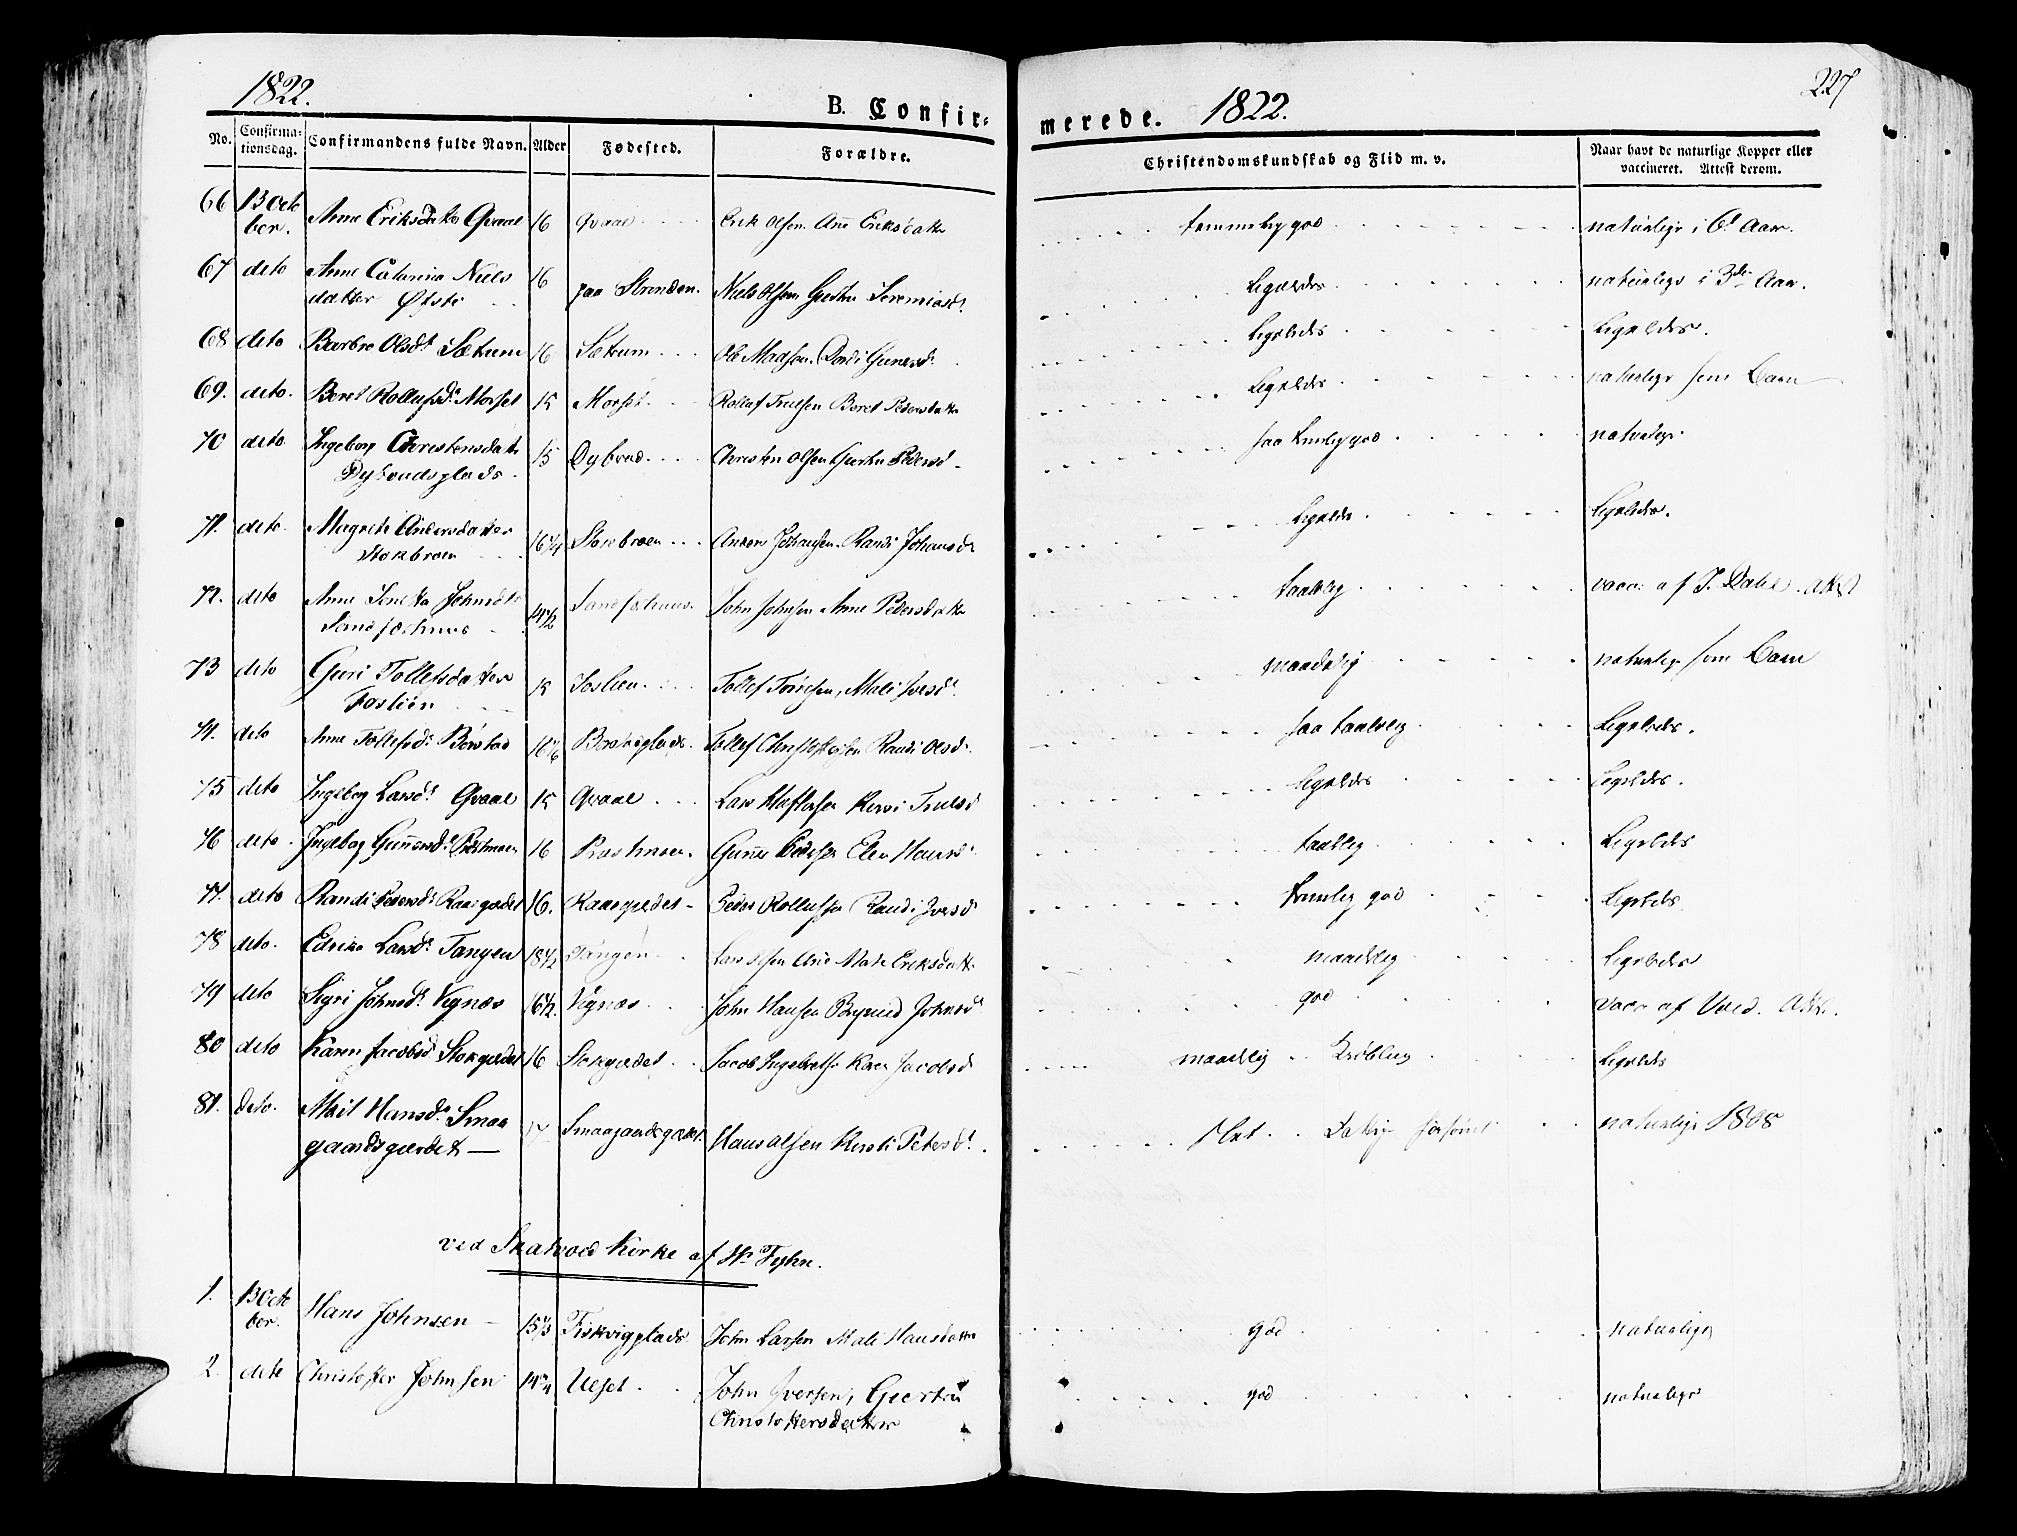 1822.
B. Confir= merede. 1822.
227
No. Confirma= tionsdag. Confirmandens fulde Navn. Alder Fødested. Forældre. Christendomskundskab og Flid m. v. Naar havt de naturlige Kopper eller vaccineret. Attest derom.
66 13 Octo ber. Anne Eriksdatter Qvaal 16 Qvaal Erik Olsen Ane Eriksdatter temmelig god naturlige i 6t Aar.
67 deto Anne Catarina Niels datter Øfsti 16 paa Stranden. Niels Olsen Giertru Jeremiasd. Ligeledes naturlige i 3de Aar.
68 deto Barbro Olsd. Sætrum 16 Sætrum Ole Madsen Dordi Gunersd. Ligeledes Ligeledes.
69. deto. Beret Rollufsd. Morset 15 Morset Rolluf Truelsen Beret Pedersdatter Ligeledes naturlige som Barn
70 deto. Ingeborg Christensdatter Dybvadsplads 15 Dybvad Christen Olsen Giertru Pedersd. god naturlige
71. deto. Magrete Andersdatter Stokbroen 16 1/4 Stokbroen Anders Johansen Randi Johansd. Ligeledes Ligeledes.
72. deto Anne Johnsdt. 14 1/2 John Johnsen Anne Pedersdatter taalelig vacc: af J. Dahl. Attest
73 deto Guri Tollefsdatter Foslién 15 Foslien Tollef Mali Iversd. maadelig naturlige som Barn
74. deto Anne Tollefsd. Børstad 16 1/6 Børstadplads. Tollef Christophersen Randi Olsd. taalelig Ligeledes.
75 deto Ingeborg Larsd. Qvaal 15 Qvaal Lars Kirsti Truelsd Ligeledes Ligeledes.
76 deto. Ingebog Gunnersd. Præstmoen 16 Præstmoen. Gunner Pedersen Elen Hansd. taalelig Ligeledes
77. deto Randi Pedersd. Raasgierdet 16. Raasgierdet Peder Rollufsen Randi Iversd temmelig god Ligeledes
78 deto. Edrike Larsd. Tangen 18 1/2 Tangen Lars Olsen Eriksdatter maadelig Ligeledes
79 deto Sigri Johnsd. Vignæs 16 1/2. Vignæs John Hansen Johnsd. god vacc af Attest.
80 deto Karen Jacobsd. Stokgierdet 16 Stokgierdet Jacob Ingebretsen Karen Jacobsd maadelig Krøbling Ligeledes
81. deto. Mali Hansd. Smaa gaardsgierdet 17 Smaagaardsgierdet Hans Olsen Kirsti Petersd. slet naturlige 1808
ved Skatvold Kirke af Hr Fyhn.
1. 13 Octo ber. Hans Johnsen 15 1/3 Fiskvigplads John Larsen Mali Hansdatter god naturlige
2. deto Christoffer Johnsen 14 3/4 Uelset John Iversen, Giertru Christoffersdatter god naturlige